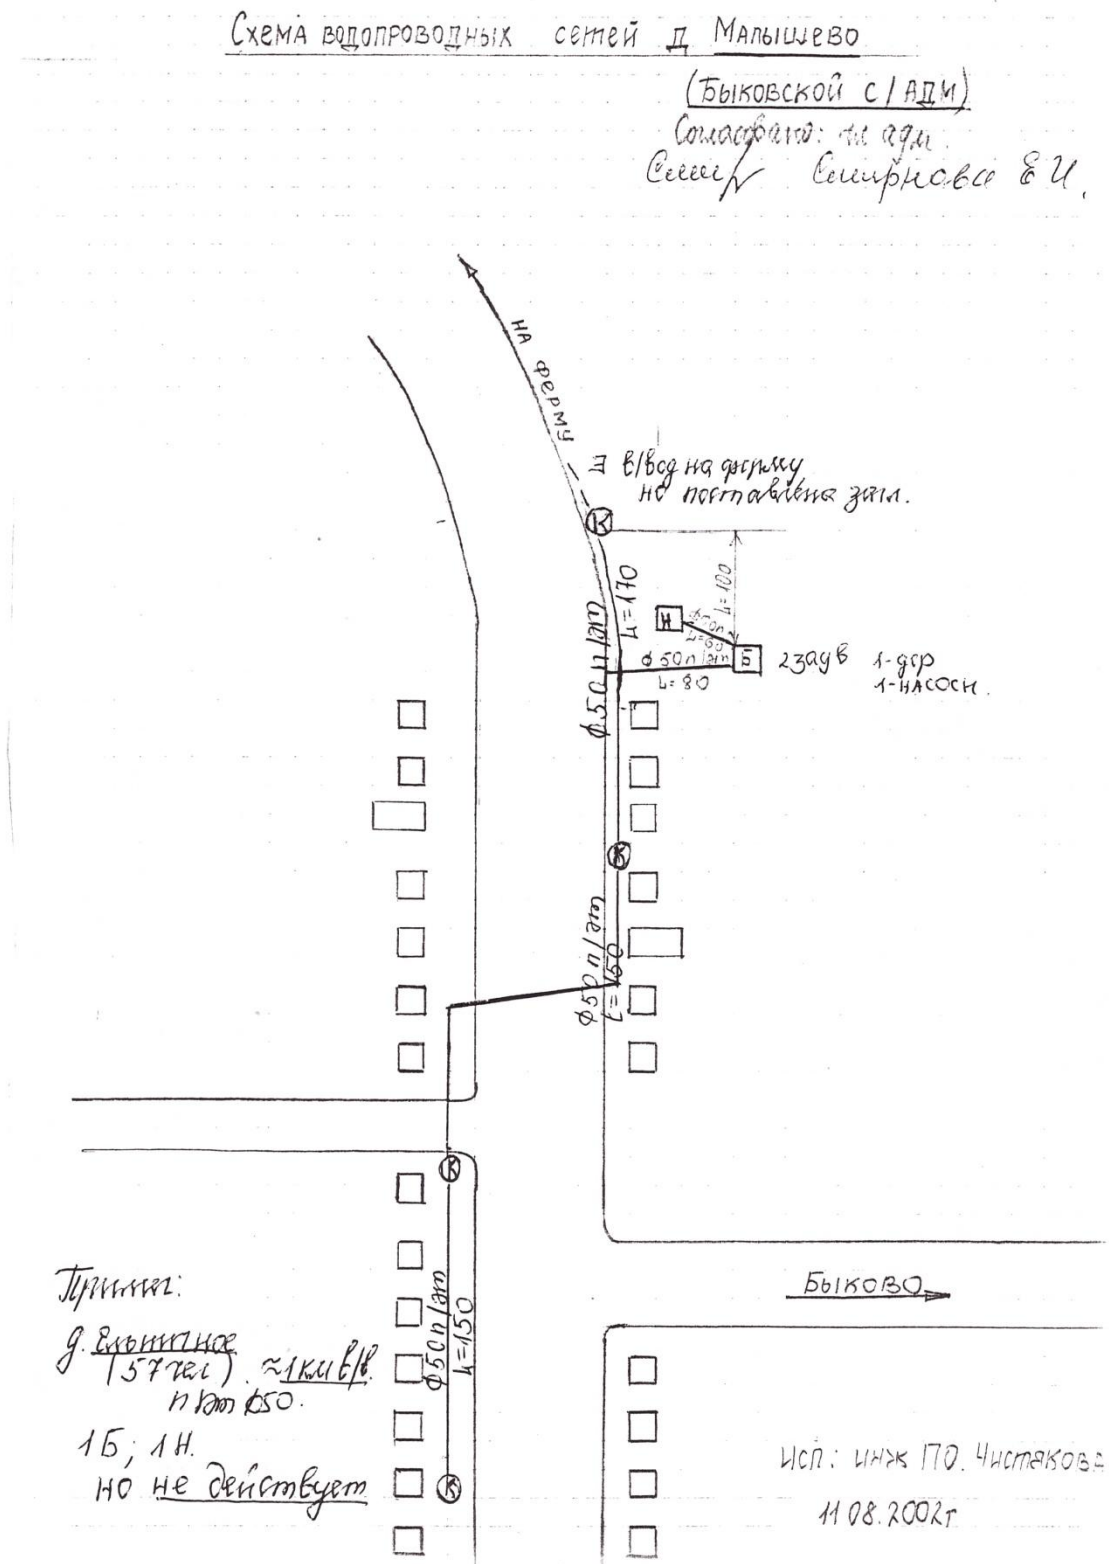 Схема водопроводных сетей д Малышево
(Быковской с/адм)
Согласовано: гл адм.
Смирнова Е И.
на ферму
Э в/вод на ферму
но поставлена загл.
К
L=170
L=100
Н
L=60
ф 50 п/эт
L=80
Б
2 задв 1-дер
1-насосн.
ф 50 п/эт
К
ф 50 п/эт
L=150
К
ф 50 п/эт
L=150
К
Быково
Примеч:
д. Ельничное
(57 чел). ≈1км в/в.
п эт ф50.
1Б; 1Н.
но не действует
Исп: инж ПО. Чистякова
11 08.2002г